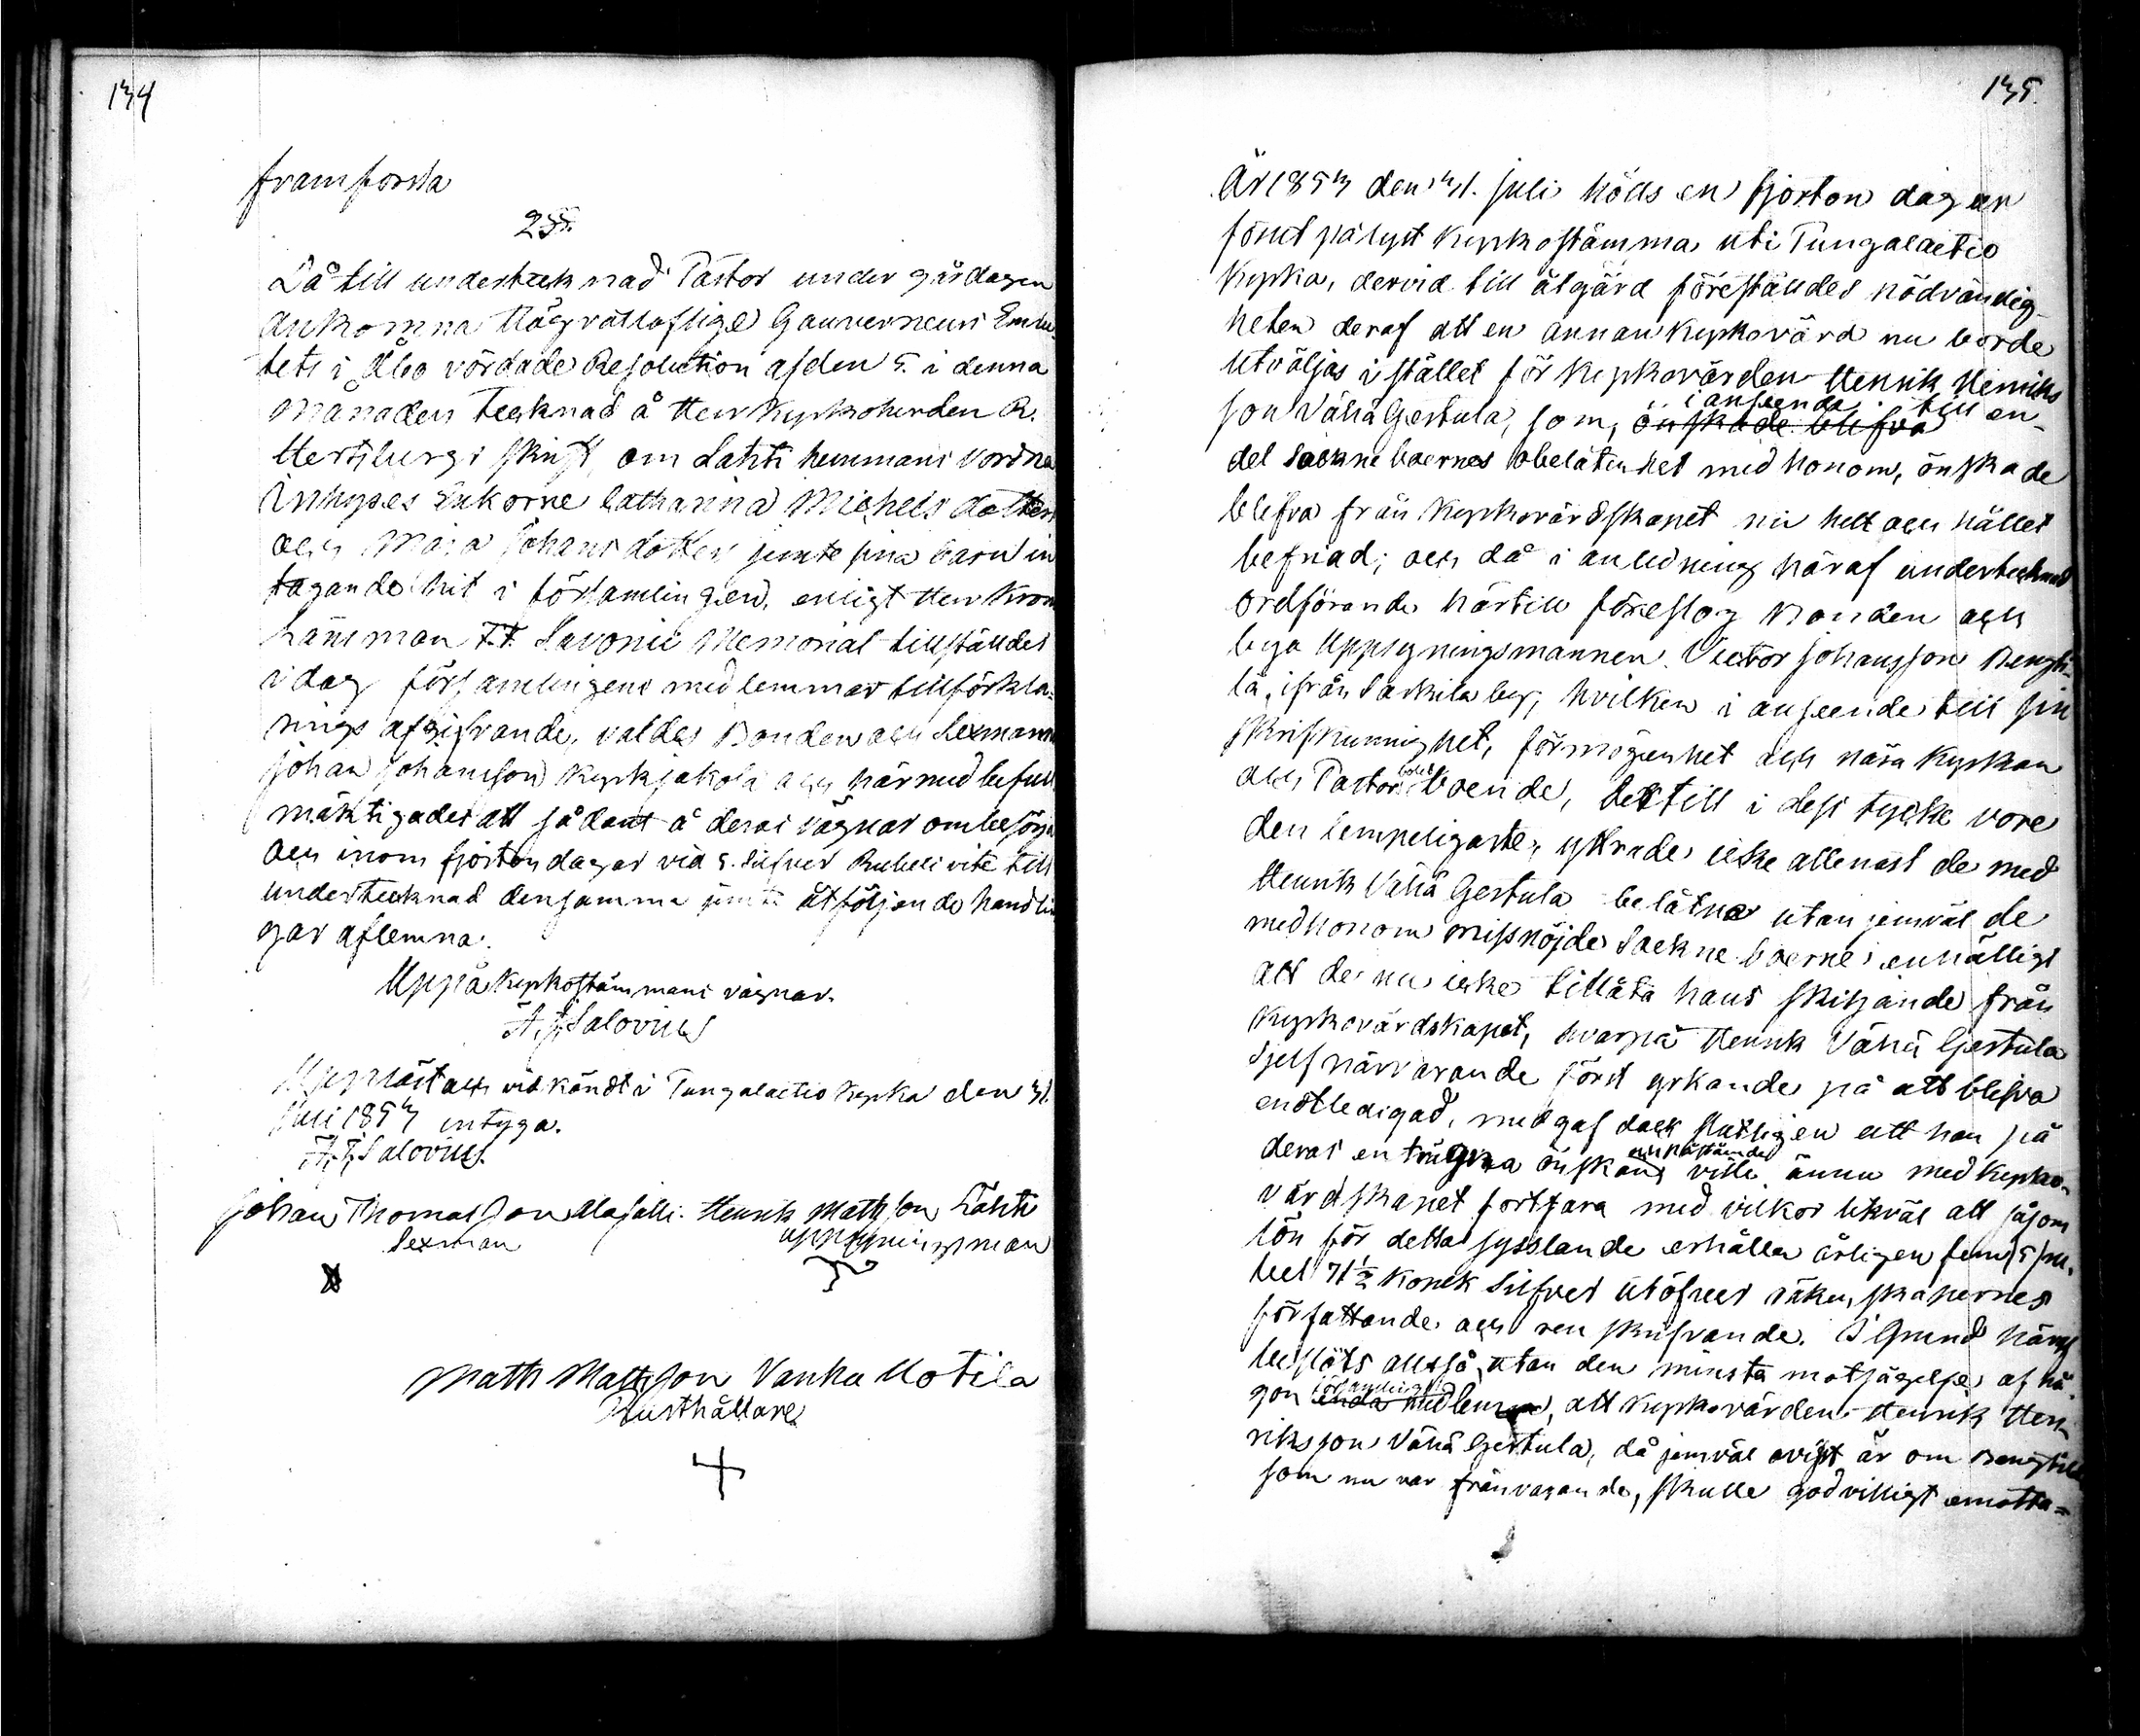 134
framforda
2 §§.
Då till undertecknad Pastor under gårdagen
ankomna Högvälloflige Gouverneurs Embe-
tets i Åbo vördade Resolution af den 5. i denna
månaden tecknad å Herr Kyrkoherden R.
Hertzbergs skrift, om Lahti hemmans vordna
Inhyses Enkorne Catharina Michels dotters
och Maja Johans dotters jemte sina barn in
tagande hit i församlingen, enligt Herr Kron
Länsman F.F. Savonii Memorial tillställdes
i dag församlingens medlemmar till förkla-
rings afgifvande, valdes Bonden och Sexmannen
Johan Johansson Kyrkjakola och härmed befull
mäktigades att sådant å deras vägnar ombesörja
och inom fjorton dagar vid 5. Silfver Rubels vite till
undertecknad densamma jemte åtföljande handlin
gar aflemna.
Uppå Kyrkostämmans vägnar.
F. F. Salovius
Uppläst och vidkändt i Tungalaetio Kyrka den 31.
Juli 1853 intyga.
F. F. Salovius.
Johan Thomasson Alasalli. Henrik Mattsson Lähte
Sexman uppsyningsman
Matts Mattsson Vanha Uotila
Rusthållare
135.
År 1853 den 31. Juli hölls en fjorton dagar
förut pålyst Kyrkostämma uti Tungalaetio
Kyrka, dervid till åtgärd föreställdes nödvändig-
heten deraf att en annan Kyrkovärd nu borde
utväljas i stället för Kyrkovärden Henrik Henriks
son Vähä Gestula, som, önskade blifva i anseende till en-
del Sockneboernes obelåtenhet med honom, önskade
blifva från Kyrkovärdskapet nu helt och hållet
befriad; och då i anledning häraf undertecknad
Ordförande härtill föreslog Bonden och
byga Uppsyningsmannen Victor Johansson Bengti-
lä, ifrån Sarkila by, hvilken i anseende till sin
skrifkunnighet, förmögenhet och nära Kyrkan
och Pastorsbolet boende, dertill i dess tycke vore
den lempeligaste, yttrade icke allenast de med
Henrik Vähä Gestula belåtna utan jemväl de
med honom missnöjde Sockneboerne enhälligt
att de nu icke tillåta hans skiljande från
Kyrkovärdskapet, hvarpå Henrik Vähä Gestula
sjelf närvarande först yrkande på att blifva
endtledigad, medgaf dock slutligen att han på
deras enträgna önskan och påstående ville ännu med Kyrko-
värdskapet fortfara med vilkor likväl att såsom
lön för detta sysslande erhålla årligen fem (5) ru-
bel 71½ Kopek Silfver utöfver räkenskapernes
författande och ren skrifvande. I Grund häraf
beslöts alltså, utan den minsta motsägelse af nå-
gon enda församlings medlem, att Kyrkovärden Henrik Hen-
riksson Vähä Gestula, då jemväl ovist är om Bengtilä
som nu var frånvarande, skulle godvilligt emotta-